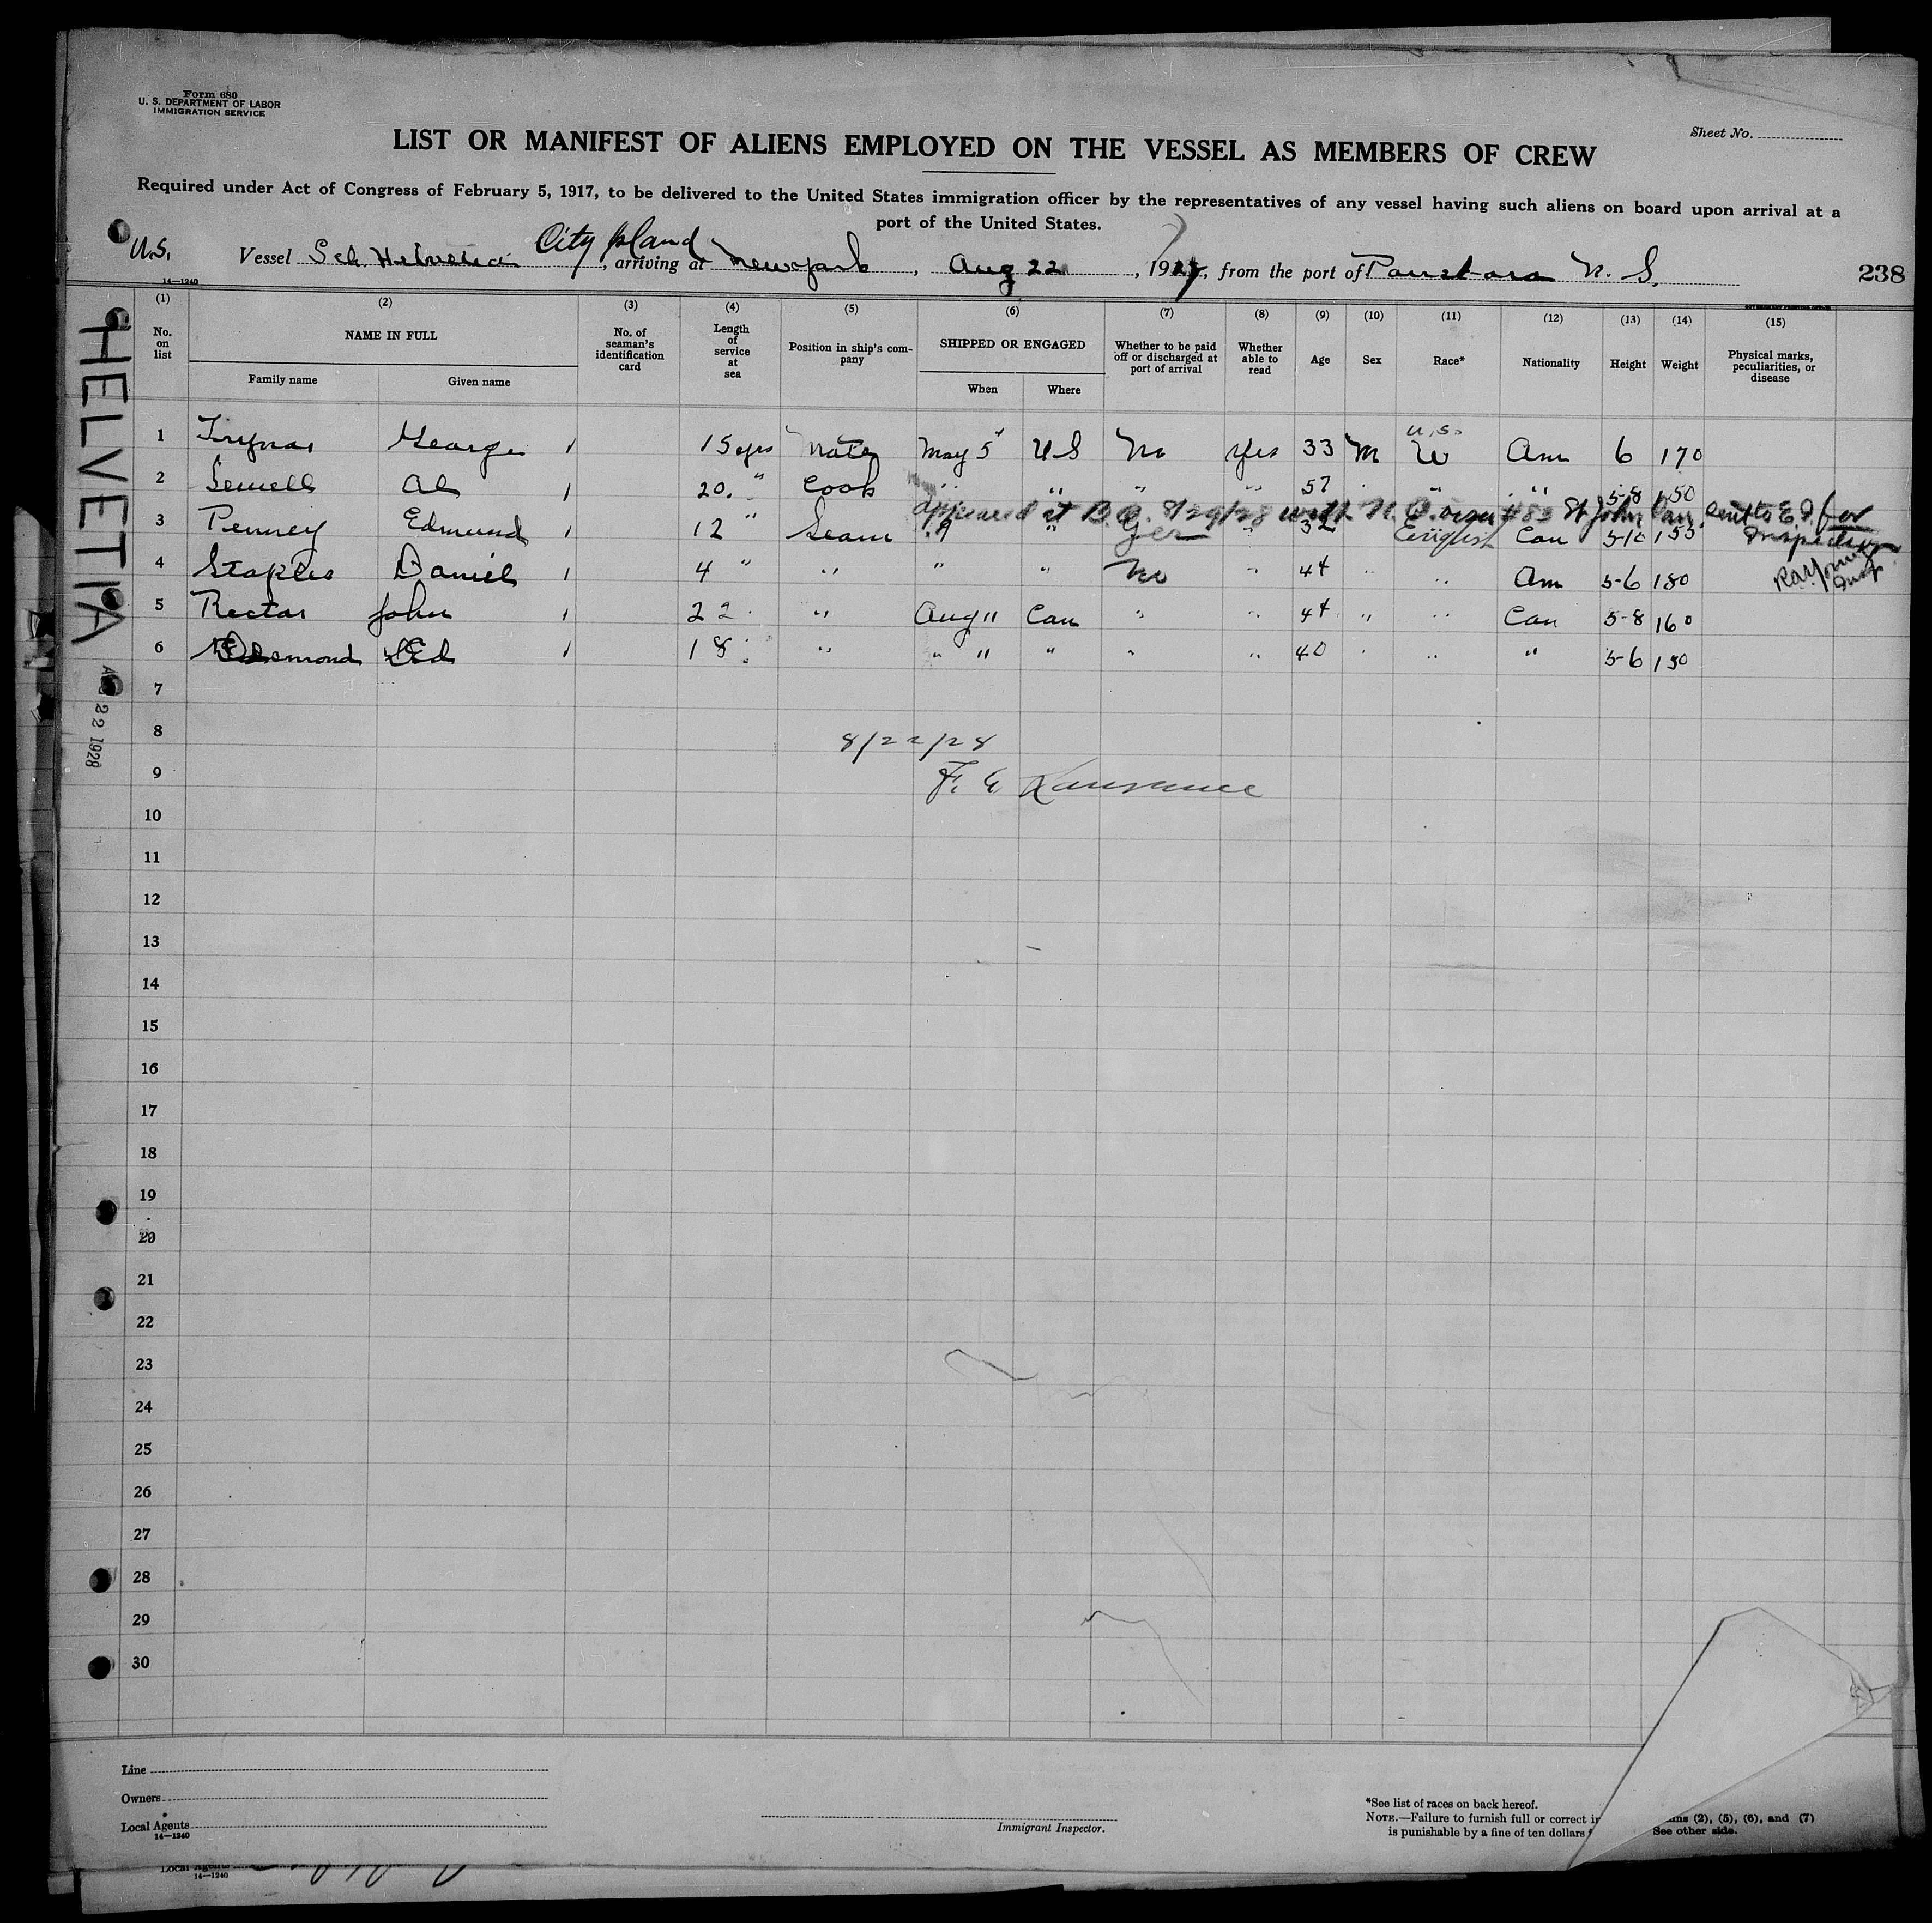 Form 680
U. S. DEPARTMENT OF LABOR
IMMIGRATION SERVICE
Sheet No.
LIST OR MANIFEST OF ALIENS EMPLOYED ON THE VESSEL AS MEMBERS OF CREW
Required under Act of Congress of February 5, 1917, to be delivered to the United States immigration officer by the representatives of any vessel having such aliens on board upon arrival at a
port of the United States.
City Island
U.S. Vessel Sch. Helvetia, arriving at New York, Aug 22, 192, from the port of N. S. 238
14—1240
HELVETIA
22 1928
(1) (2) (3) (4) (5) (6) (7) (8) (9) (10) (11) (12) (13) (14) (15)
No. on list
NAME IN FULL
Family name
Given name
No. of seaman's identification card
Length of service at sea
Position in ship's company
SHIPPED OR ENGAGED
When
Where
Whether to be paid off or discharged at port of arrival
Whether able to read
Age
Sex
Race*
Nationality
Height
Weight
Physical marks, peculiarities, or disease
U.S.
1 George 15 yrs Mate May 5 U S No Yes 33 M W Am 6 170
2 Sewell Al 20 " Cook " " " " 57 " " 5-8 150
appeared at B.O. 8/29/28 with St John Can. sent to E.I. for
Inspection
3 Penney Edmund 12 " Seam " " Yes " 32 English Can 5-10 155
4 Staples Daniel 4 " " " " No " 44 " " Am 5-6 180
5 Rector John 22 " " Aug 11 Can " " 44 " " Can 5-8 160
6 Desmond Ed 18 " " " " " " " 40 " " " 5-6 150
7
8
8/22/28
9
F. E. Lawrence
10
11
12
13
14
15
16
17
18
19
20
21
22
23
24
25
26
27
28
29
30
Line
Owners
Local Agents
14—1240
Immigrant Inspector.
*See list of races on back hereof.
NOTE.—Failure to furnish full or correct in (2), (5), (6), and (7)
is punishable by a fine of ten dollars See other side.
Local Agents
14—1240